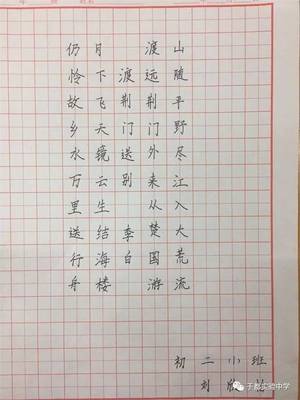 山随平野尽江入大荒流
渡远荆门外来从楚国游
渡荆门送别 李白
月下飞天镜云生结海楼
仍怜故乡水万里送行舟
初二小班
刘
于都实验中学